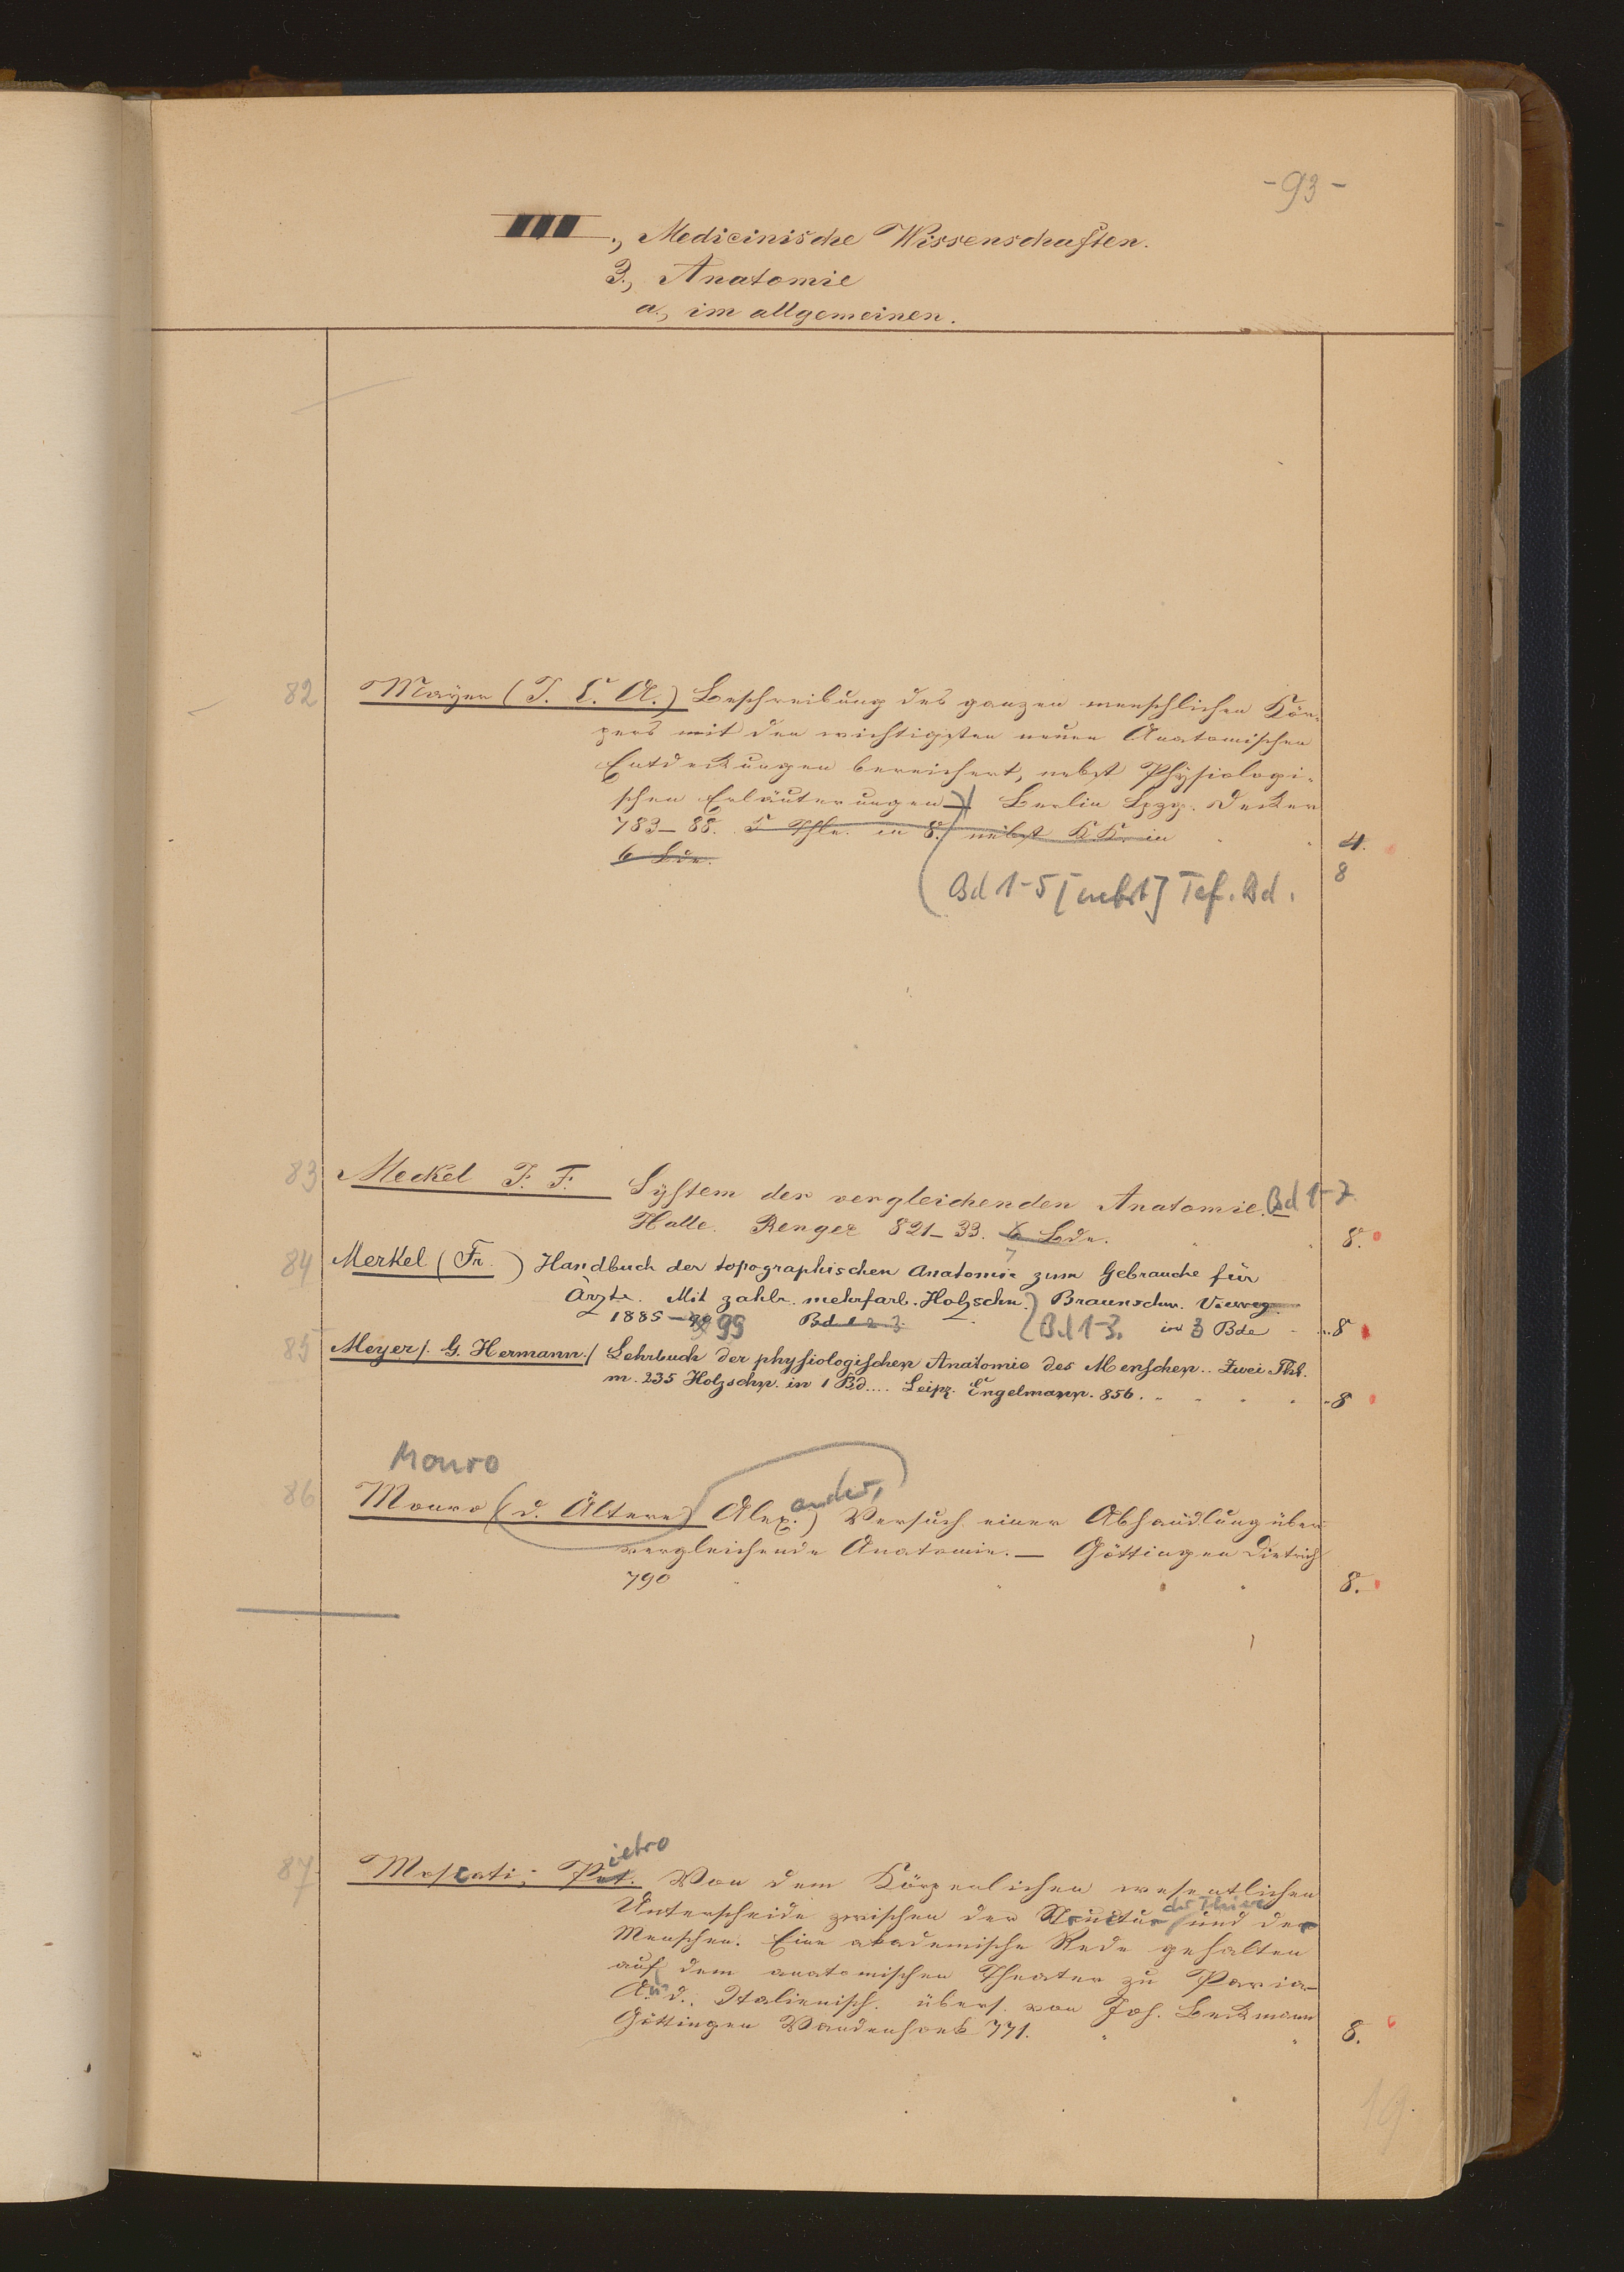 - 93 -
III., Medicinische Wissenschaften.
3., Anatomie
a., im allgemeinen.
82 Mayer (J. C. A.) Beschreibung des ganzen menschlichen Kör-
pers mit den wichtigsten neuen Anatomischen
Entdeckungen bereichert, nebst Physiologi-
schen Erläuterungen — Berlin Lpzg. Decker
783–88. 5 Thle. in 8. nebst K.K. in 4.
6 Bde. 8
(Bd 1-5 [nebst] Taf. Bd.
83 Meckel J. F. System der vergleichenden Anatomie. Bd 1-7
Halle. Renger 821–33. 6 Bde. 8.
7
84 Merkel (Fr.) Handbuch der topographischen Anatomie zum Gebrauche für
Ärzte. Mit zahlr. mehrfarb. Holzschn.) Braunschw. Vieweg.
1885–99 Bd 1 2 3. (Bd 1-3. in 3 Bde 8
85 Meyer /. G. Hermann./ Lehrbuch der physiologischen Anatomie des Menschen.. Zwei Thl.
m. 235 Holzschn. in 1 Bd.... Leipz. Engelmann. 856. 8
Monro
86 Monro (d. Ältere) Alex.ander, ) Versuch einer Abhandlung über
vergleichende Anatomie. — Göttingen Dietrich
790 8.
87. Moscati; Pet. ietro Von dem Körperlichen wesentlichen
Unterscheide zwischen der Structur der Thiere und der
Menschen. Eine akademische Rede gehalten
auf dem anatomischen Theater zu Pavia —
A. d. Italienisch. übers. von Joh. Beckmann
Göttingen Vandenhoek 771. 8.
19.